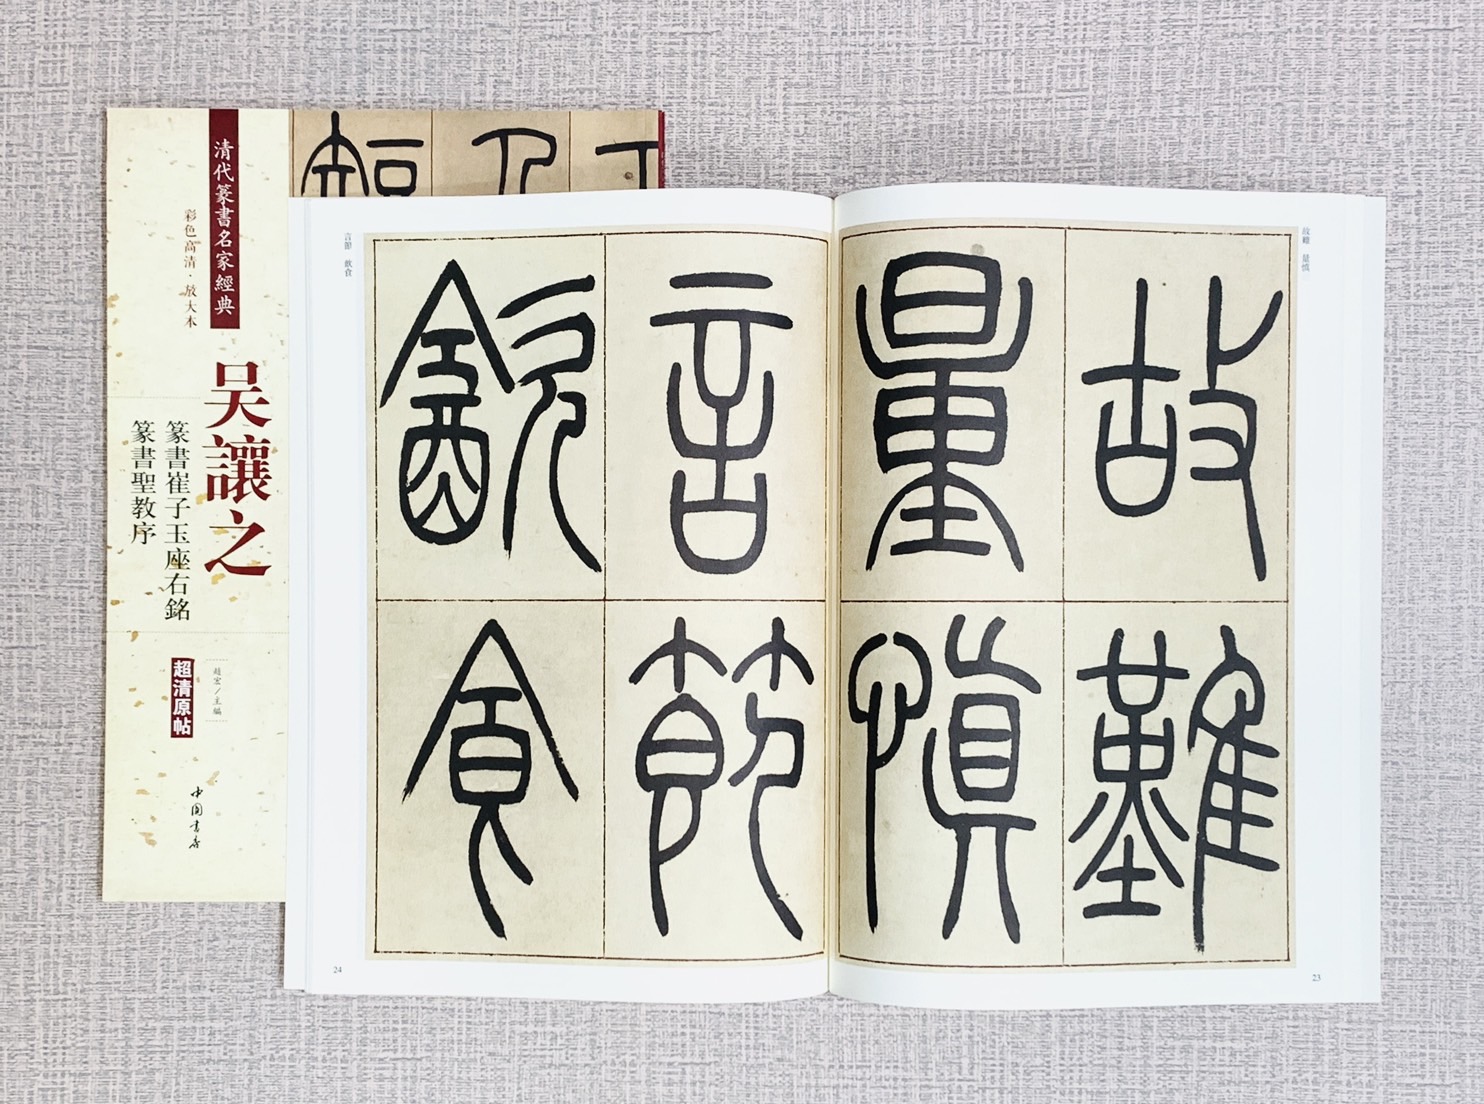 清代篆書名家經典
彩色高清·放大本
吴讓之
篆書崔子玉座右銘
篆書聖教序
趙宏/主編
超清原帖
中国书店
故難 量慎
故難
量慎
23
言節
飲食
言節 飲食
24